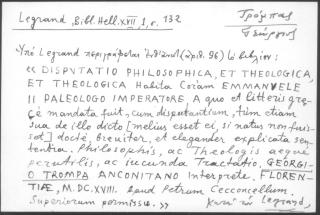 Legrand, Bibl. Hell. XVII, 1, σ. 132
Τρόμπας
Γεώργιος
Ὑπὸ Legrand περιγράφεται ἐνθ' ἀνωτ. (ἀριθ. 96) τὸ βιβλίον:
« DISPVTATIO PHILOSOPHICA, ET THEOLOGICA,
ET THEOLOGICA Habita Coram EMMANVELE
II PALEOLOGO IMPERATORE. A quo et litteris græ-
cè mandata fuit, cum disputantium, tùm etiam
sua de illo dicto [melius esset ei, si natus non fuis-
set] doctè, breuiter, et eleganter explicata sen-
tentia. Philosophis, ac Theologis aequè
perutilis, ac iucunda Tractatio, GEORGI-
O TROMPA ANCONITANO Interprete. FLOREN-
TIÆ, M.DC.XVIII. Apud Petrum Cecconcellum.
Superiorum permissu. »
Κατὰ τὸν Legrand,